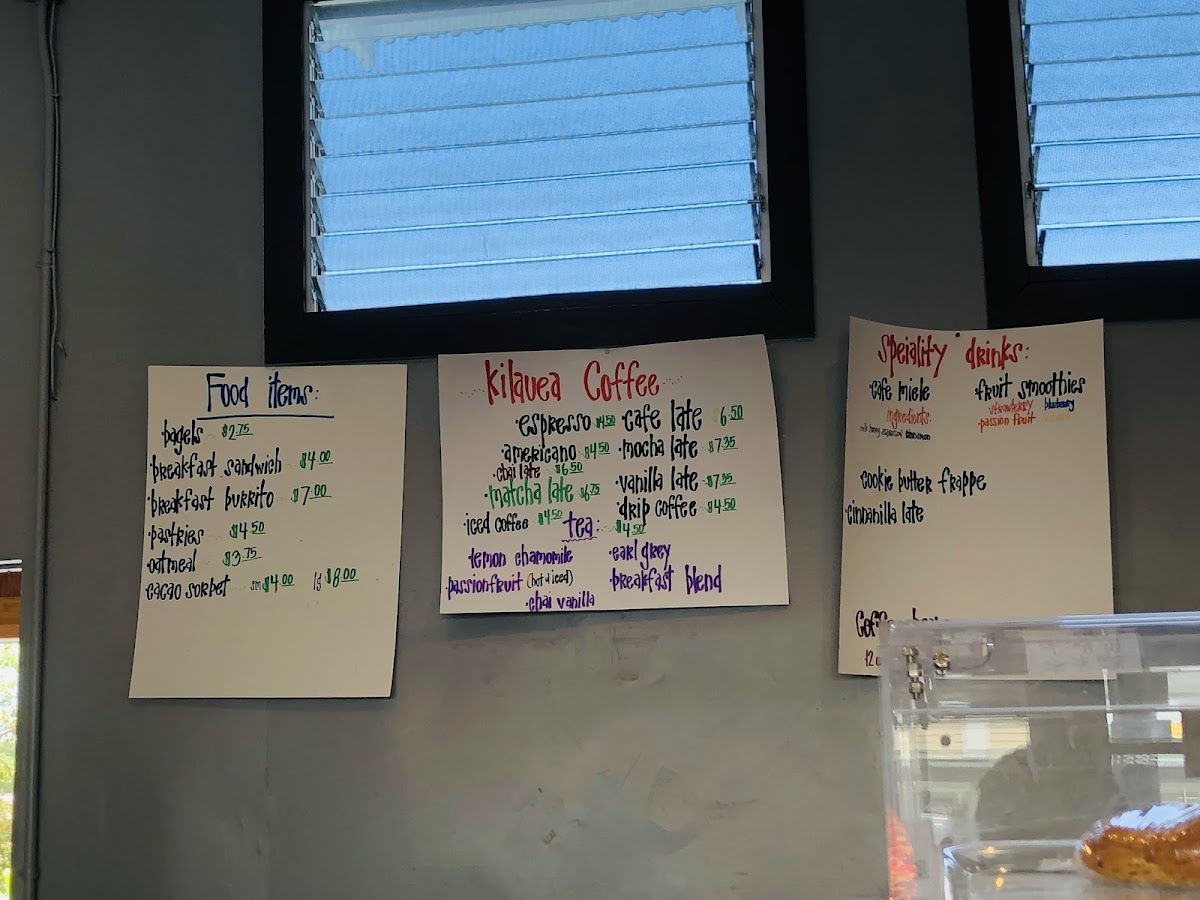 Food items:
·bagels $2.75
·breakfast sandwich $4.00
·breakfast burrito $7.00
·pastries $4.50
·oatmeal $3.75
·cacao sorbet sm $4.00 lg $8.00
Kilauea Coffee
·espresso $4.50
·americano $4.50
·chai late $6.50
·matcha late $6.75
·iced coffee $4.50
·cafe late 6.50
·mocha late $7.35
·vanilla late $7.35
·drip coffee $4.50
tea: $4.50
·lemon chamomile
·passionfruit (hot & iced)
·chai vanilla
·earl grey
·breakfast blend
Speiality drinks:
·cafe miele
ingredients:
milk honey cinnamon
·fruit smoothies
·strawberry blueberry
·passion fruit
·cookie butter frappe
·cinnanilla late
12